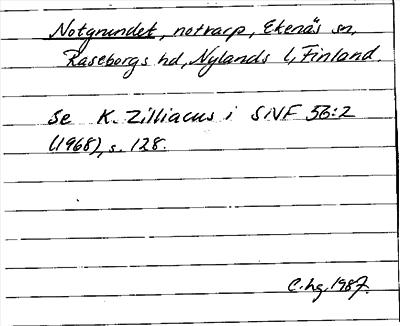 Notgrundet, notvarp, Ekenäs sn,
Raseborgs hd, Nylands l, Finland.
Se K. Zilliacus i SNF 56:2
(1968), s. 128.
C.hg. 1987.